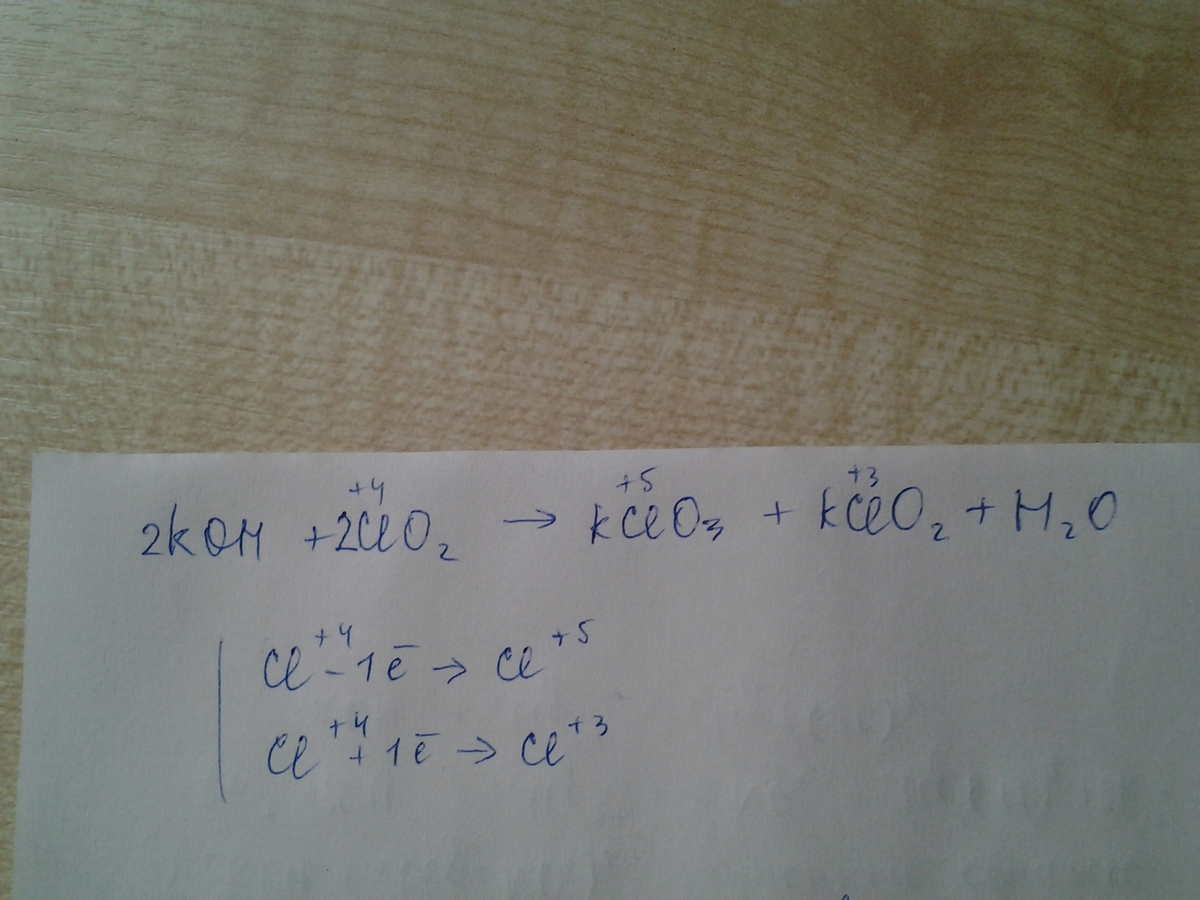 2KOH + 2Cl⁺⁴O₂ → KCl⁺⁵O₃ + KCl⁺³O₂ + H₂O
Cl⁺⁴ - 1ē → Cl⁺⁵
Cl⁺⁴ + 1ē → Cl⁺³